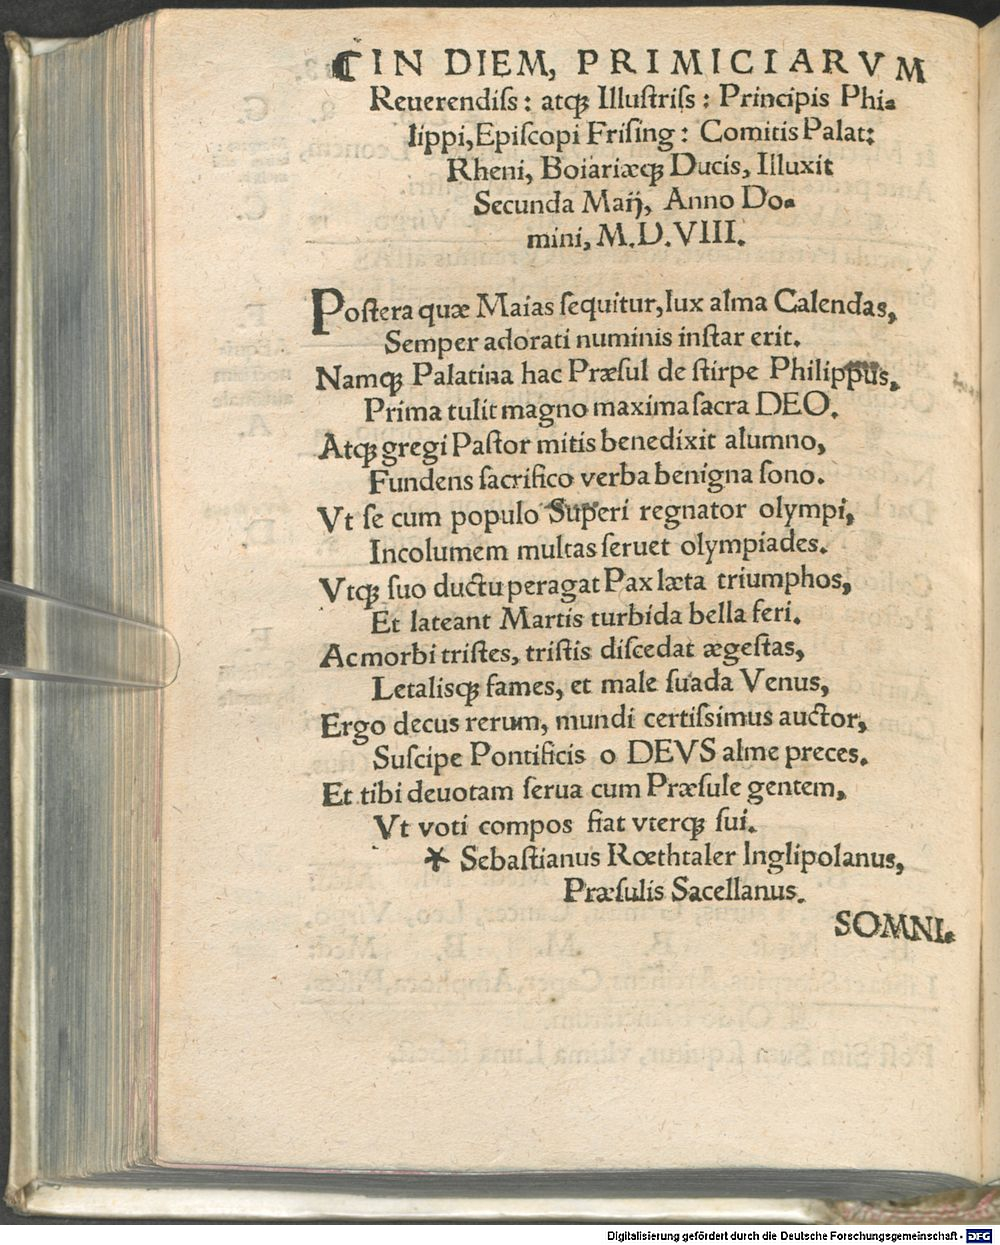 ⸿IN DIEM, PRIMICIARVM
Reuerendiſs: atqꝫ Illuſtriſs: Principis Phi⸗
lippi, Epiſcopi Friſing: Comitis Palat:
Rheni, Boiariæqꝫ Ducis, Illuxit
Secunda Maij, Anno Do⸗
mini, M.D.VIII.
Poſtera quæ Maias ſequitur, lux alma Calendas,
Semper adorati numinis inſtar erit.
Namqꝫ Palatina hac Præſul de ſtirpe Philippus,
Prima tulit magno maxima ſacra DEO.
Atqꝫ gregi Paſtor mitis benedixit alumno,
Fundens ſacrifico verba benigna ſono.
Vt ſe cum populo Superi regnator olympi,
Incolumem multas ſeruet olympiades.
Vtqꝫ ſuo ductu peragat Pax læta triumphos,
Et lateant Martis turbida bella feri.
Ac morbi triſtes, triſtis diſcedat ægeſtas,
Letalisqꝫ fames, et male ſuada Venus,
Ergo decus rerum, mundi certiſsimus auctor,
Suſcipe Pontificis o DEVS alme preces.
Et tibi deuotam ſerua cum Præſule gentem,
Vt voti compos fiat vterqꝫ ſui.
* Sebaſtianus Rœthtaler Inglipolanus,
Præſulis Sacellanus.
SOMNI⸗
Digitalisierung gefördert durch die Deutsche Forschungsgemeinschaft - DFG